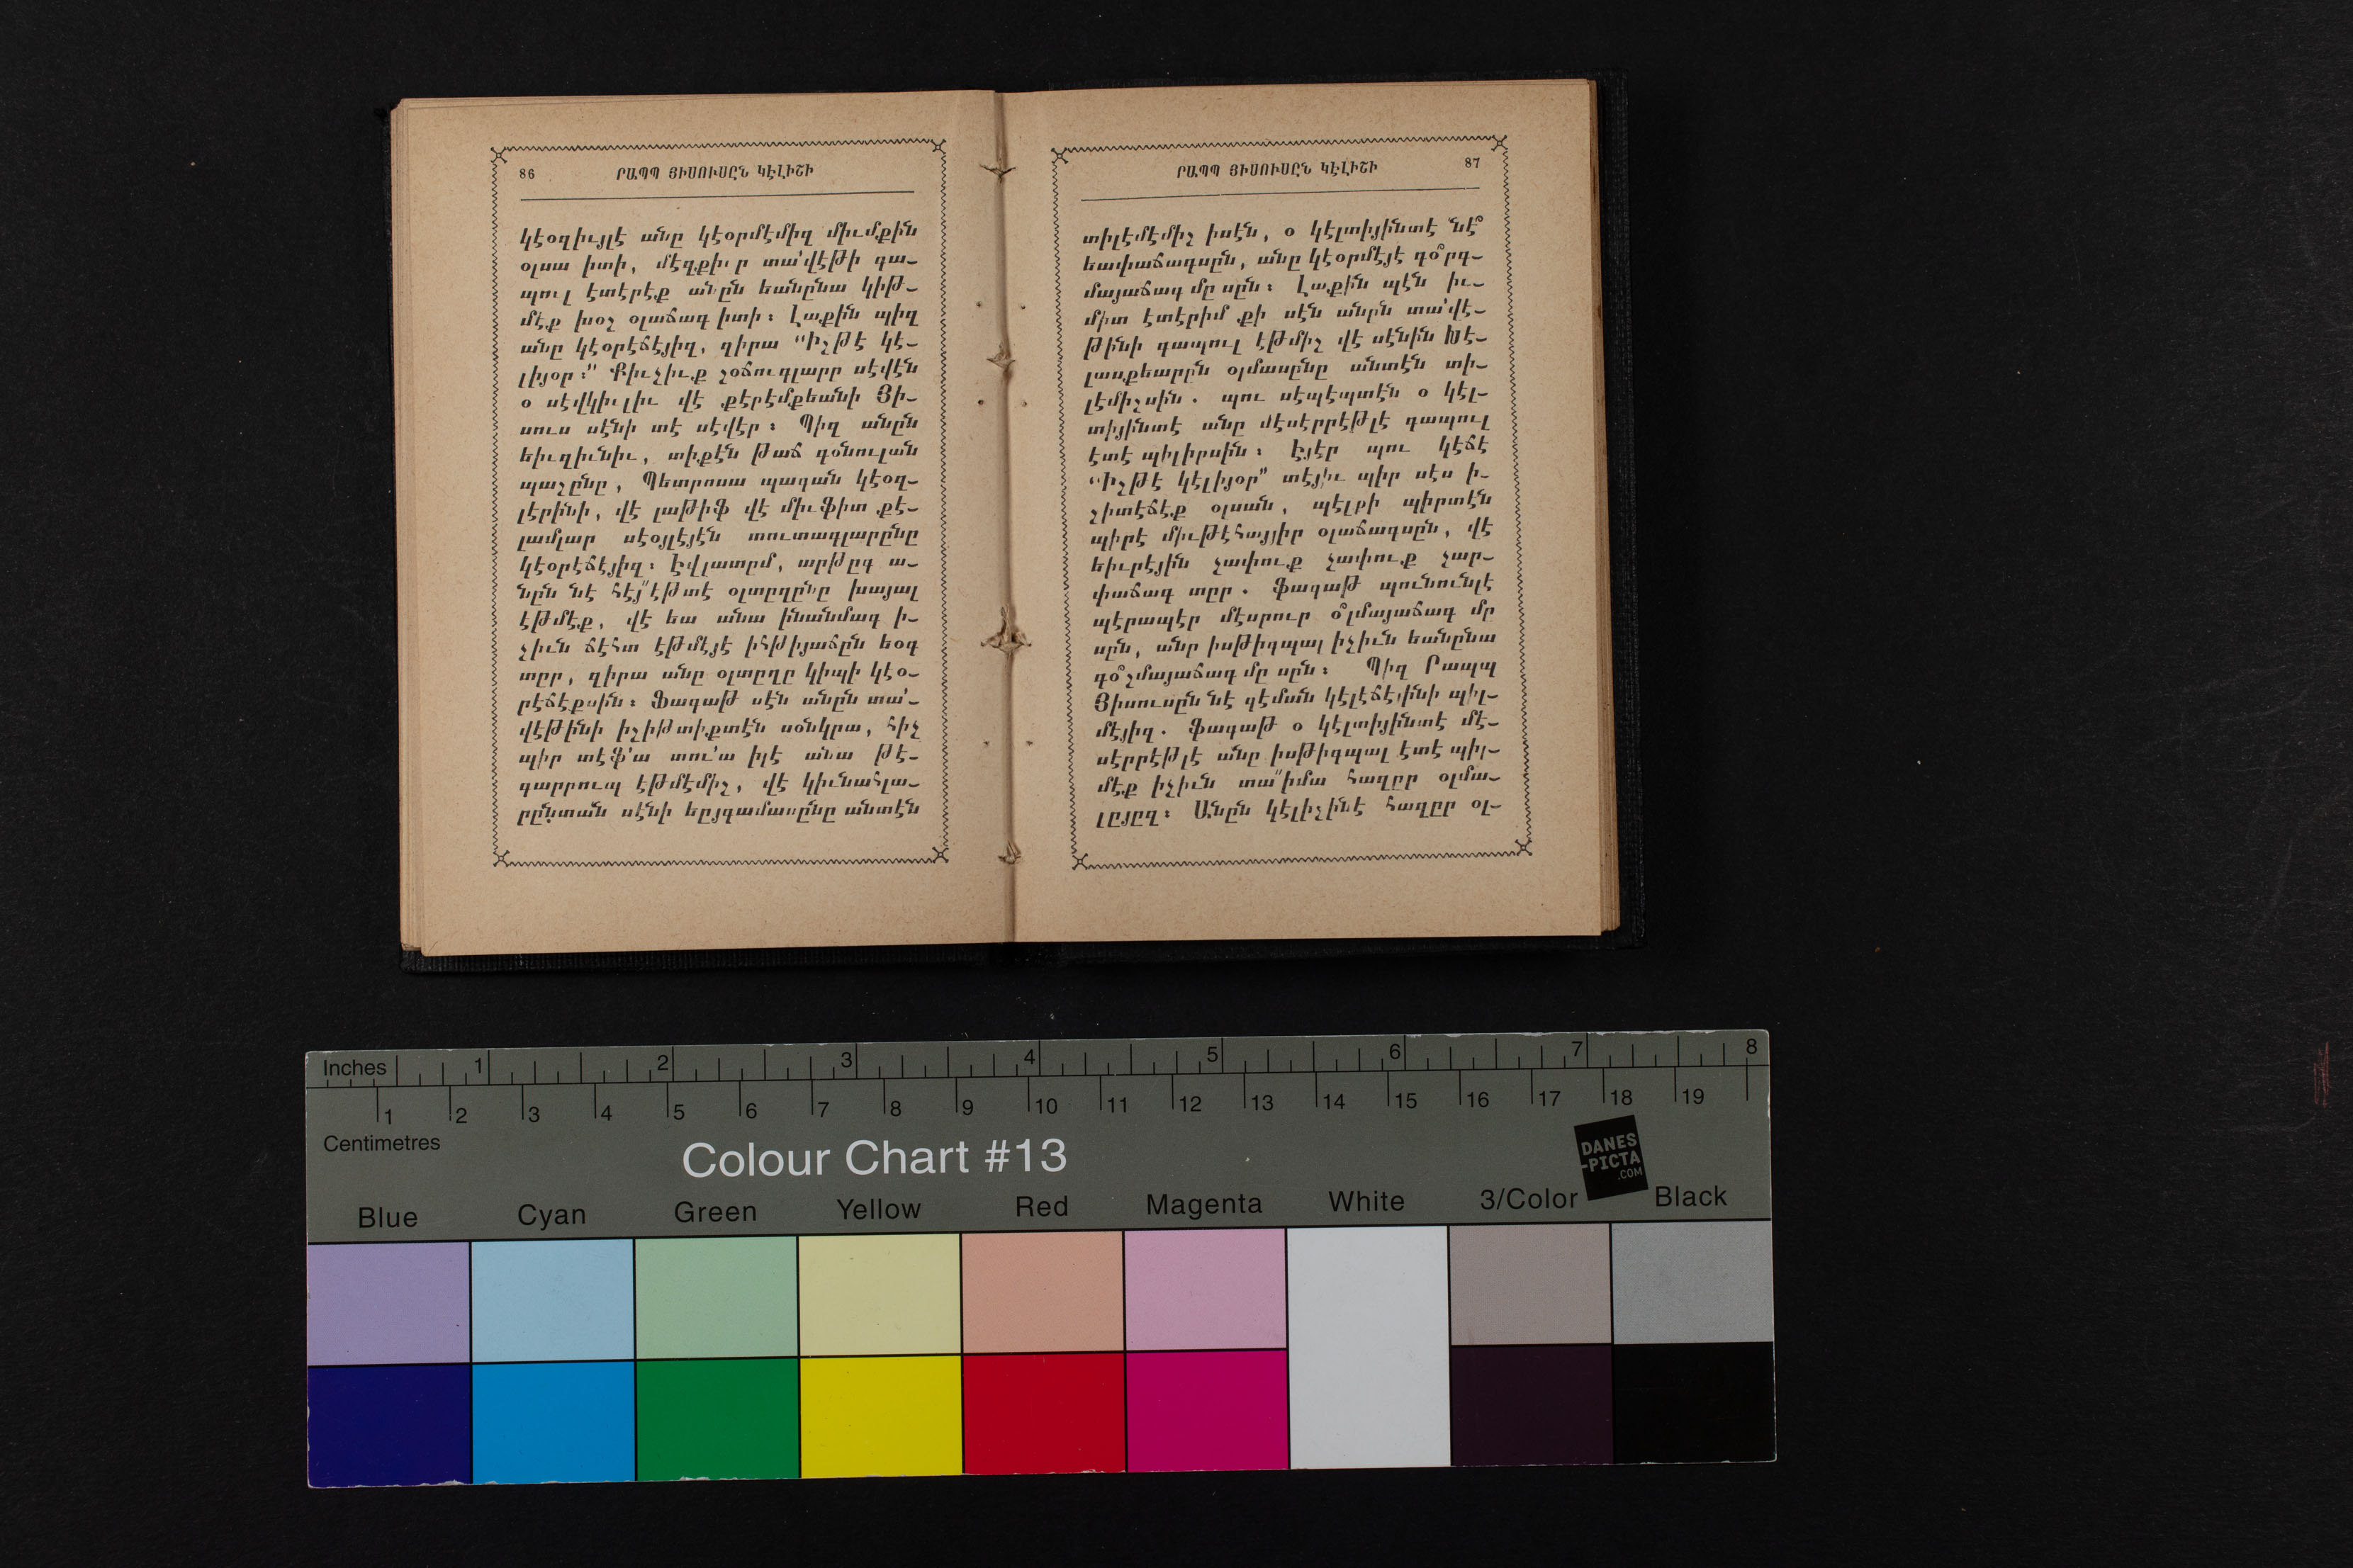 86 ՐԱՊՊ ՅԻՍՈՒՍԸՆ ԿԷԼԻՇԻ
կէօզիւյլէ անը կէօրմէմիզ միւմքին
օլսա իտի, մէզքիւր տա՛վէթի գա-
պուլ էտէրէք անըն եանընա կիթ-
մէք խօշ օլաճագ իտի։ Լաքին պիզ
անը կէօրէճէյիզ, զիրա "Իշթէ կէ-
լիյօր։" Քիւչիւք չօճուգլարը սէվէն
օ սէվկիւլիւ վէ քէրէմքեանի Յի-
սուս սէնի տէ սէվէր։ Պիզ անըն
եիւզիւնիւ, տիքէն թաճ գօնուլան
պաշընը, Պետրոսա պագան կէօզ-
լէրինի, վէ լաթիֆ վէ միւֆիտ քէ-
լամլար սէօյլէյէն տուտագլարընը
կէօրէճէյիզ։ Էվլատըմ, արթըգ ա-
նըն նէ հէյ՛՛էթտէ օլտըղընը խայալ
էթմէք, վէ եա անա ինանմագ ի-
չիւն ճէհտ էթմէյէ իհթիյաճըն եօգ
տըր, զիրա անը օլտըղը կիպի կէօ-
րէճէքսին։ Ֆագաթ սէն անըն տա՛-
վէթինի իշիթտիքտէն սօնկրա, հիչ
պիր տէֆ՛ա տու՛ա իլէ անա թէ-
գարրուպ էթմէմիշ, վէ կիւնահլա-
րընտան սէնի եըյգամասընը անտէն
ՐԱՊՊ ՅԻՍՈՒՍԸՆ ԿԷԼԻՇԻ 87
տիլէմէմիշ իսէն, օ կէլտիյինտէ նէ՞
եափաճագսըն, անը կէօրմէյէ գօ՞րգ-
մայաճագ մը սըն։ Լաքին պէն իւ-
միտ էտէրիմ քի սէն անըն տա՛վէ-
թինի գապուլ էթմիշ վէ սէնին Խէ-
լասքեարըն օլմասընը անտէն տի-
լէմիշսին. պու սէպէպտէն օ կէլ-
տիյինտէ անը մէսէրրէթլէ գապուլ
էտէ պիլիրսին։ Էյէր պու կէճէ
"Իշթէ կէլիյօր" տէյիւ պիր սէս ի-
շիտէճէք օլսան, պէլքի պիրտէն
պիրէ միւթէհայյիր օլաճագսըն, վէ
եիւրէյին չափուք չափուք չար-
փաճագ տըր. ֆագաթ պունունլէ
պէրապէր մէսրուր օ՞լմայաճագ մը
սըն, անը իսթիգպալ իչիւն եանընա
գօ՞շմայաճագ մը սըն։ Պիզ Րապպ
Յիսուսըն նէ զէման կէլէճէյինի պիլ-
մէյիզ. ֆագաթ օ կէլտիյինտէ մէ-
սէրրէթլէ անը իսթիգպալ էտէ պիլ-
մէք իչիւն տա՛՛իմա հազըր օլմա-
լըյըզ։ Անըն կէլիշինէ հազըր օլ-
Inches 1 2 3 4 5 6 7 8
1 2 3 4 5 6 7 8 9 10 11 12 13 14 15 16 17 18 19
Centimetres
Colour Chart #13
DANES
-PICTA
.COM
Blue Cyan Green Yellow Red Magenta White 3/Color Black